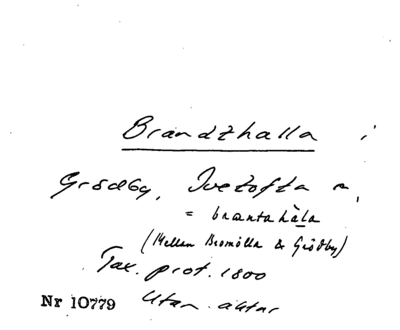 Brandthalla i
Grödby, Ivetofta s,
= brantahàla
(Mellan Bromölla & Grödby)
Tax. prot. 1800
Nr 10779 Utan aktnr